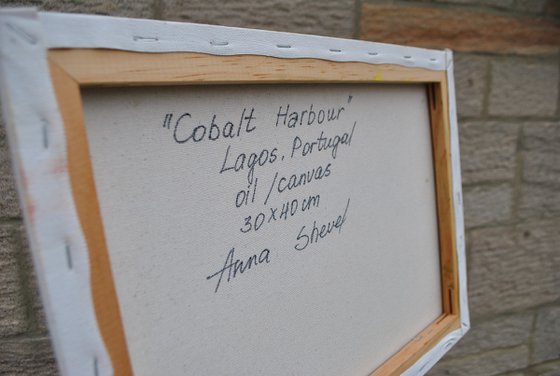 "Cobalt Harbour"
Lagos, Portugal
oil / canvas
30x40 cm
Anna Shevel